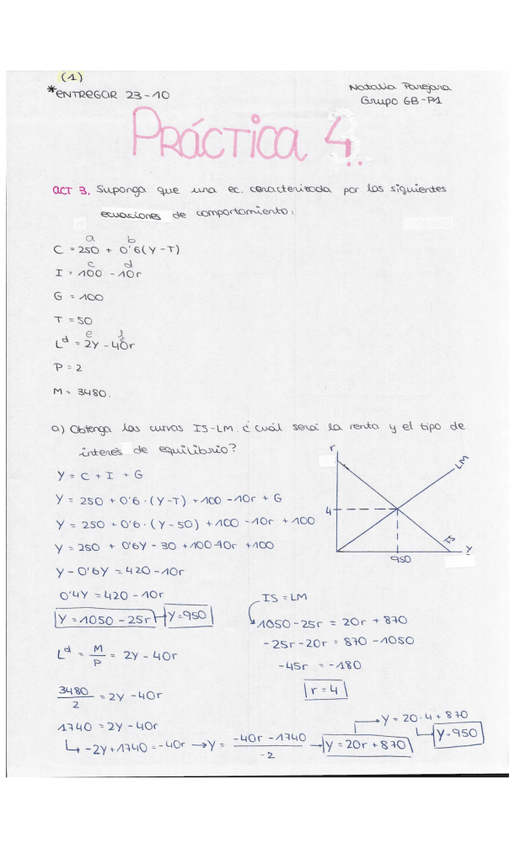 (1)
*ENTREGAR 23-10
Natalia Parejara
Grupo GB-P1
PRÁCTICA 4.
ACT 3. Suponga que una ec. caracterizada por las siguientes
ecuaciones de comportamiento:
a b
C = 250 + 0'6(Y-T)
c d
I = 100 - 10r
G = 100
T = 50
e f
Lᵈ = 2Y - 40r
P = 2
M = 3480.
a) Obtenga las curvas IS-LM. ¿cuál será la renta y el tipo de
interés de equilibrio?
Y = C + I + G
Y = 250 + 0'6 · (Y-T) + 100 - 10r + G
Y = 250 + 0'6 · (Y - 50) + 100 - 10r + 100
Y = 250 + 0'6Y - 30 + 100-10r + 100
Y - 0'6Y = 420 - 10r
0'4Y = 420 - 10r
Y = 1050 - 25r Y = 950
r
LM
4
IS
Y
950
IS = LM
1050 - 25r = 20r + 870
-25r - 20r = 870 - 1050
-45r = -180
r = 4
Lᵈ = M/P = 2Y - 40r
3480/2 = 2Y - 40r
1740 = 2Y - 40r
-2Y + 1740 = -40r → Y = -40r - 1740/-2 → Y = 20r + 870
Y = 20·4 + 870
Y = 950